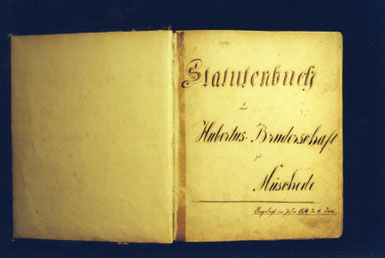 Statutenbuch
der
Hubertus-Bruderschaft
zu
Müschede
Angelegt im Jahre